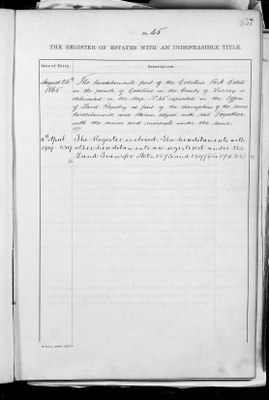 No 45
THE REGISTER OF ESTATES WITH AN INDEFEASIBLE TITLE.
Date of Entry. Description.
August 1865 The hereditaments part of the Park Estate
in the parish of in the County of Surrey is
delineated on the Map No 45 deposited in the Office
of Land Registry as part of the description of the said
hereditaments and thereon edged with red Together
with the mines and minerals under the same.
April The Register is closed. The hereditaments with
other hereditaments are registered under the
Land Transfer Acts 1875 and 1897